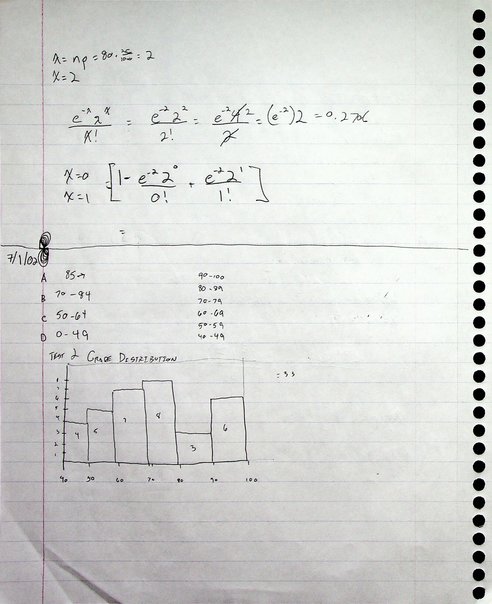 λ = np = 80 · 25/1000 = 2
x = 2
e^-λ λ^x / x! = e^-2 2^2 / 2! = e^-2 4 2 / 2 = (e^-2) 2 = 0.2706
x = 0
x = 1
[1 - e^-2 2^0 / 0! + e^-2 2^1 / 1!]
=
7/1/02
A 85→ 90-100
B 70-84 80-89
70-79
C 50-64 60-69
50-59
D 0-49 40-49
TEST 2 GRADE DISTRIBUTION
= 33
4 5 7 8 3 6
8
7
6
5
4
3
2
1
40 50 60 70 80 90 100